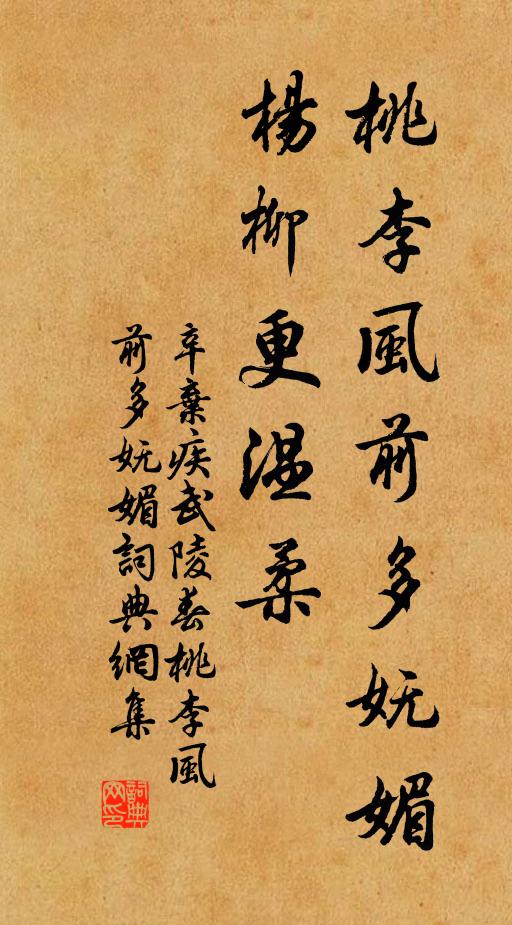 桃李風前多妩媚
楊柳更温柔
辛棄疾武陵春桃李風
前多妩媚詞典網集
詞典
网印